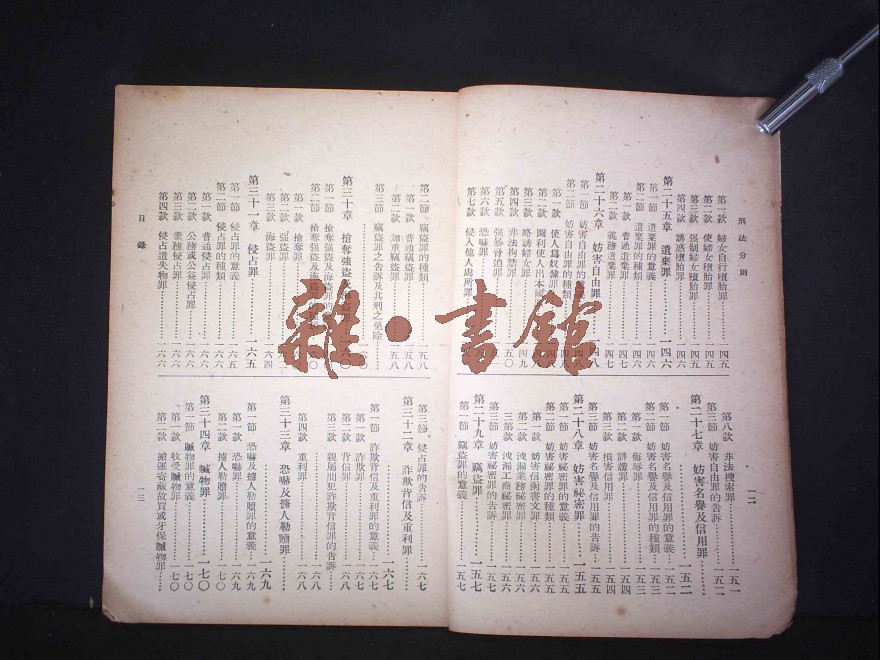 刑法分則
一二
第一款 婦女自行墮胎罪……一四五
第二款 使婦女墮胎罪……一四五
第三款 強制婦女墮胎罪……一四五
第四款 誘惑墮胎罪……一四六
第二十五章 遺棄罪……一四六
第一節 遺棄罪的意義……一四六
第二節 遺棄罪的種類……一四六
第一款 普通遺棄罪……一四七
第二款 義務遺棄罪……一四七
第二十六章 妨害自由罪……一四八
第一節 妨害自由罪的意義
第二節 妨害自由罪的種類
第一款 使人爲奴隸罪
第二款 圖利使人出本國
第三款 略誘婦女罪……四九
第四款 非法拘禁罪……五〇
第五款 強暴脅迫罪
第六款 恐嚇罪
第七款 侵入他人處所罪
第八款 非法搜索罪……一五一
第三節 妨害自由罪的告訴……一五二
第二十七章 妨害名譽及信用罪……一五二
第一節 妨害名譽及信用罪的意義……一五二
第二節 妨害名譽及信用罪的種類……一五三
第一款 侮辱罪……一五三
第二款 誹謗罪……一五四
第三款 損害信用罪……一五四
第三節 妨害名譽及信用罪的告訴……一五五
第二十八章 妨害祕密罪……一五五
第一節 妨害祕密罪的意義……一五五
第二節 妨害祕密罪的種類……一五五
第一款 妨害信函書文罪……一五五
第二款 洩漏業務祕密罪……一五六
三第款 洩漏工商祕密罪……一五六
第三節 妨害祕密罪的告訴……一五七
第二十九章 竊盜罪……一五七
第一節 竊盜罪的意義……一五七
目錄
一三
第二節 竊盜罪的種類……一五八
第一款 普通竊盜罪……一五八
第二款 加重竊盜罪……一五八
第三節 竊盜罪之告訴及其刑之免除……
第三十章 搶奪強盜
第一節 搶奪強盜及海盜罪的
第二節 搶奪強盜及海盜
第一款 搶奪罪
第二款 強盜罪
第三款 海盜罪……六四
第三十一章 侵占罪……一六五
第一節 侵占罪的意義……一六五
第二節 侵占罪的種類……一六六
第一款 普通侵占罪……一六六
第二款 公務或公益侵占罪……一六六
第三款 業務侵占罪……一六六
第四款 侵占遺失物罪……一六六
第三節 侵占罪的告訴……一六七
第三十二章 詐欺背信及重利罪……一六七
第一節 詐欺背信及重利罪的意義……一六七
第一款 詐欺罪……一六七
第二款 背信罪……一六八
第三款 親屬間犯詐欺背信罪的告訴……一六八
第四款 重利罪……一六八
第三十三章 恐嚇及擄人勒贖罪……一六九
第一節 恐嚇及擄人勒贖罪的意義……一六九
第一款 恐嚇罪……一六九
第二款 擄人勒贖罪……一七〇
第三十四章 贓物罪……一七〇
第一節 贓物罪的意義……一七〇
第一款 收受贓物罪……一七〇
第二款 搬運寄藏故買或牙保贓物罪……一七〇
雜·書館